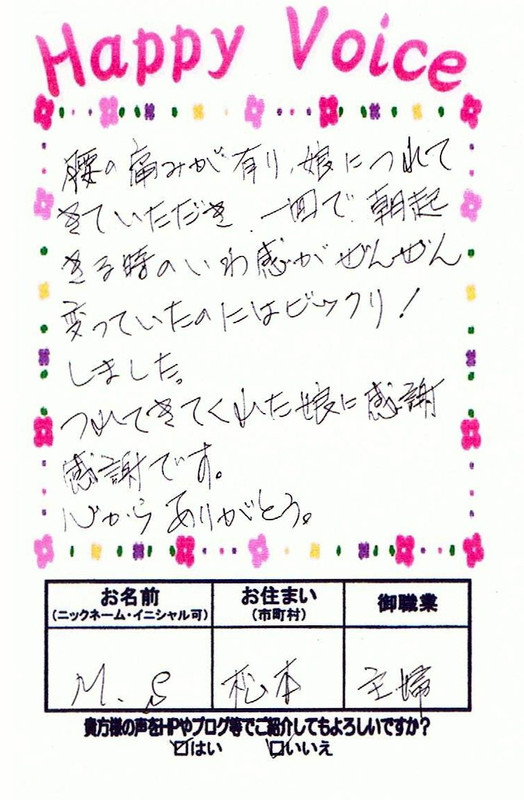 Happy Voice
腰の痛みが有り、娘につれて
きていただき、一回で、朝起
きる時のいわ感がぜんぜん
変っていたのにはビックリ!
しました。
つれてきてくれた娘に感謝
感謝です。
心からありがとう。
お名前 お住まい 御職業
(ニックネーム・イニシャル可) (市町村)
M.S 松本 主婦
貴方様の声をHPやブログ等でご紹介してもよろしいですか?
☑はい □いいえ